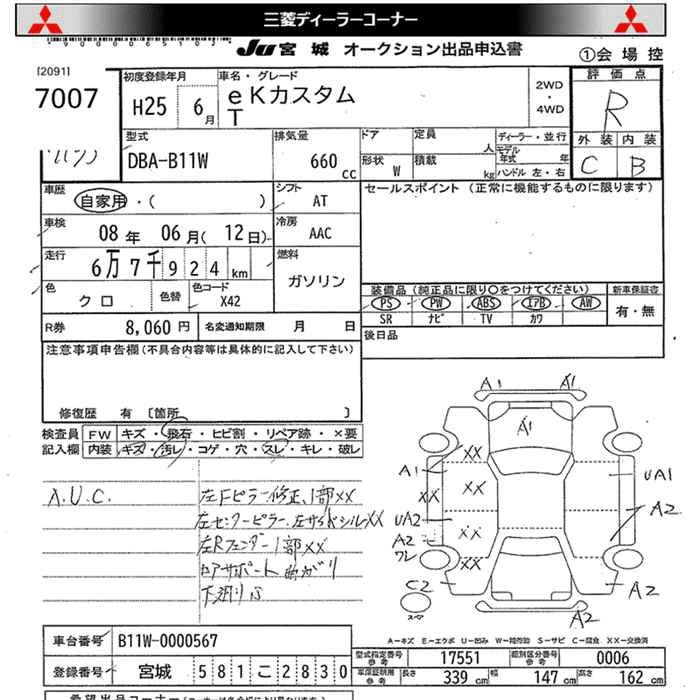 三菱ディーラーコーナー
JU 宮城 オークション出品申込書
①会場控
[2091]
7007
初度登録年月
H25 6月
車名・グレード
eKカスタム
T
2WD
・
4WD
評価点
R
外装 内装
C B
型式
DBA-B11W
排気量
660 CC
ドア 定員 人
形状 W 積載 kg
ディーラー・並行
モデル年式 年
ハンドル 左・右
車歴
自家用・( )
シフト
AT
セールスポイント (正常に機能するものに限ります)
車検
08年 06月(12日)
冷房
AAC
走行
6万7千924km
燃料
ガソリン
色
クロ
色替
色コード
X42
装備品(純正品に限り○をつけてください)
PS PW ABS エアB AW
SR ナビ TV カワ
新車保証書
有・無
R券 8,060円
名変通知期限 月 日
後日品
注意事項申告欄(不具合内容等は具体的に記入して下さい)
修復歴 有 〔箇所 〕
検査員 FW キズ・飛石・ヒビ割・リペア跡・×要
記入欄 内装 キズ・汚レ・コゲ・穴・スレ・キレ・破レ
A.U.C.
左Fピラー修正、1部XX
左センターピラー、左サイドシルXX
左Rフェンダー1部XX
コアサポート曲がり
下廻りS
A1 A1
A1
XX
A1
XX XX
UA1
UA2
XX
A2
A2
ワレ
XX
C2
スペア
A2
A2
A-キズ E-エクボ U-凹み W-補修跡 S-サビ C-腐食 XX-交換済
車台番号 B11W-0000567
登録番号 宮城 581こ2830
型式指定番号 参考 17551
類別区分番号 参考 0006
車庫証明用 参考 長さ 339cm 幅 147cm 高さ 162cm